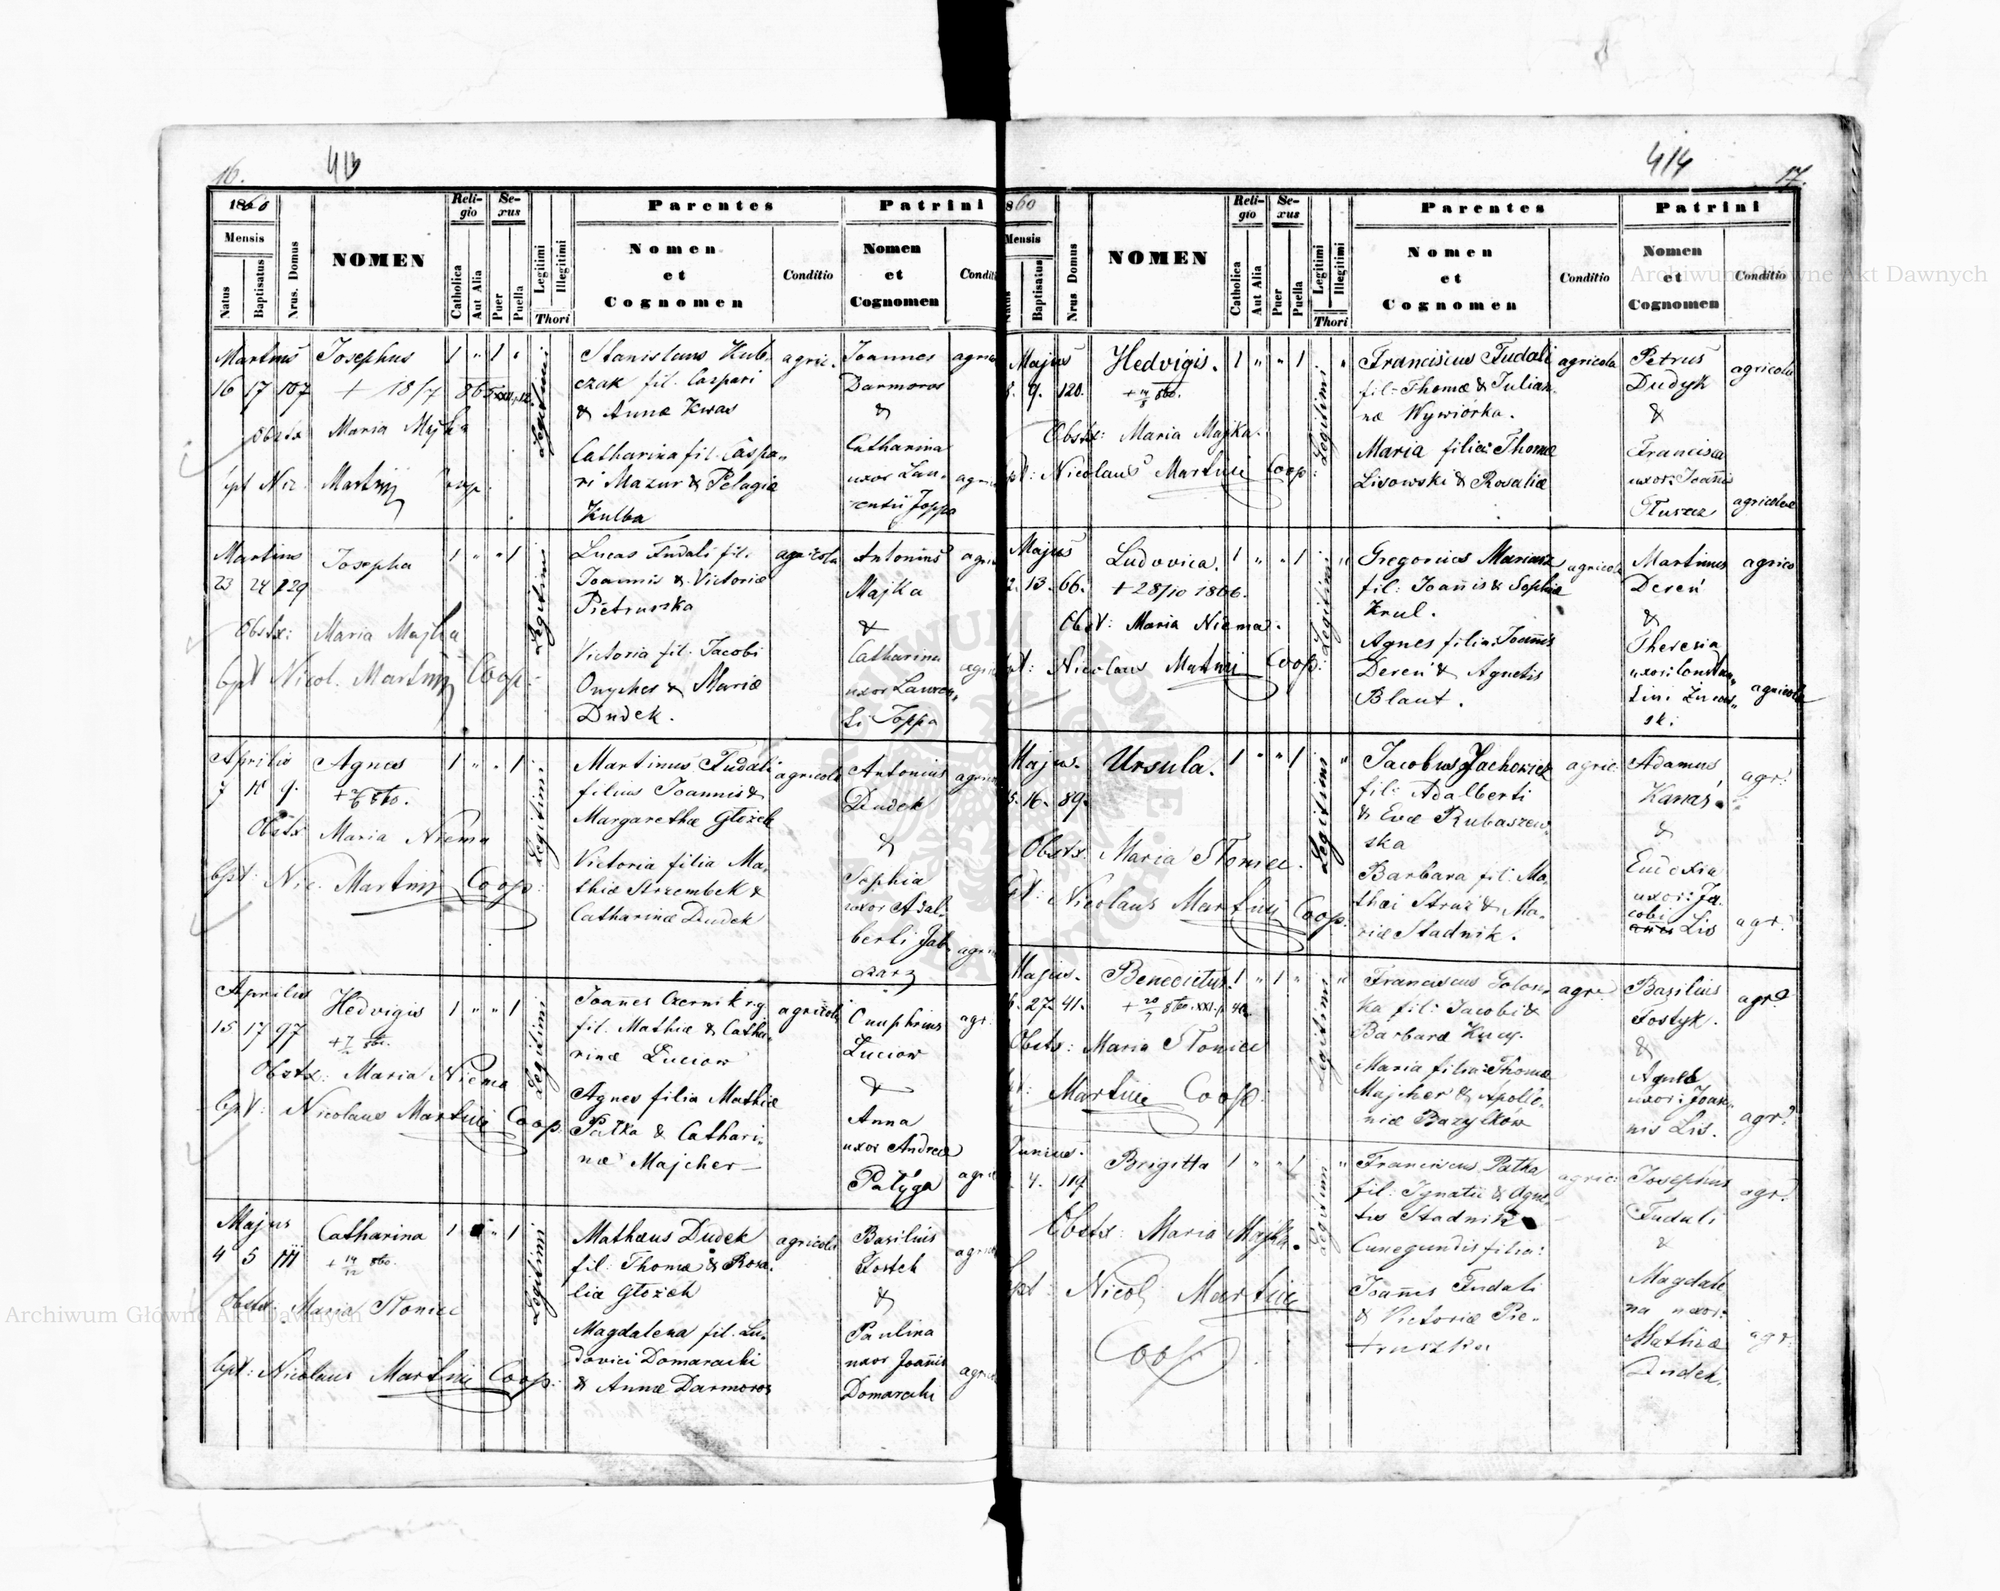 16.
413
1860
Mensis
Natus
Baptisatus
Nrus. Domus
NOMEN
Religio
Catholica
Aut Alia
Sexus
Puer
Puella
Legitimi
Illegitimi
Thori
Parentes
Nomen
et
Cognomen
Conditio
Patrini
Nomen
et
Cognomen
Martius
16 17 107
Josephus
+ 18/7 865
Obstx Maria Majka
bpt Nic. Martinij Coop.
1 " 1 "
Legitimi
Stanislaus Kub-
czak fil. Caspari
& Annæ Kwas
Catharina fil. Caspa-
ri Mazur & Pelagiæ
Kulba
agric.
Joannes
Darmoros
&
Catharina
uxor Lau-
rentii Joppa
Martius
23 24 129
Josepha
Obstx: Maria Majka
bpt Nicol. Martinij Coop.
1 " " 1
Legitimi
Lucas Fudali fil.
Joannis & Victoriæ
Pietruszka
Victoria fil. Jacobi
Onyskes & Mariæ
Dudek.
agricola
Antonius
Majka
&
Catharina
uxor Lauren-
ti Joppa
Aprilis
7 10 9.
Agnes
Obstx Maria Niema
bpt: Nic. Martinij Coop:
1 " " 1
Legitimi
Martinus Fudali
filius Joannis &
Margarethæ Głożek
Victoria filia Ma-
thiæ Strzembek &
Catharinæ Dudek
agricola
Antonius
Dudek
&
Sophia
uxor Adal-
berti Jab-
czarz
Aprilis
15 17 97
Hedvigis
Obstx: Maria Niema
bpt: Nicolaus Martinij Coop:
1 " " 1
Legitimi
Joannes Czernik
fil. Mathiæ & Catha-
rinæ Łuciow
Agnes filia Mathiæ
Pałka & Cathari-
næ Majcher
agricola
Onuphrius
Łuciow
&
Anna
uxor Andreæ
Patyga
agr.
Majus
4 5 111
Catharina
+ 14/12 860.
Obstx: Maria Słoniec
bpt: Nicolaus Martinij Coop:
1 " 1
Legitimi
Mathæus Dudek
fil. Thomæ & Rosa-
lia Głożek
Magdalena fil. Lu-
dovici Domaracki
& Annæ Darmoros
agricola
Basilius
Fostek
&
Paulina
uxor Joannis
Domaracki
414
17.
860
Mensis
Natus
Baptisatus
Nrus Domus
NOMEN
Religio
Catholica
Aut Alia
Sexus
Puer
Puella
Legitimi
Illegitimi
Thori
Parentes
Nomen
et
Cognomen
Conditio
Patrini
Nomen
et
Cognomen
Conditio
Majus
8. 9. 120.
Hedvigis.
Obstx: Maria Majka.
bpt: Nicolaus Martinij Coop:
1 " " 1
Legitimi
Franciscus Fudali
fil: Thomæ & Julian-
næ Wywiórka.
Maria filia: Thomæ
Lisowski & Rosaliæ
agricola
Petrus
Dudyk
&
Francisca
uxor: Joannis
Tłuszcz
agricola
agricolæ
Majus
12. 13. 66.
Ludovica.
+ 28/10 1866.
Obst: Maria Niema.
bpt: Nicolaus Martinij Coop:
1 " " 1
Legitimi
Gregorius Marszał
fil: Joannis & Sophiæ
Krul.
Agnes filia: Joannis
Dereń & Agnetis
Blaut.
agricola
Martinus
Dereń
&
Theresia
uxor: Constan-
tini
ski
agricola
Majus.
15. 16. 89.
Ursula.
Obstx Maria Słoniec.
bpt: Nicolaus Martinij Coop:
1 " " 1
Legitimi
Jacobus Jachowicz
fil: Adalberti
& Evæ Rubaszew-
ska
Barbara fil: Ma-
thæi Struś & Ma-
riæ Stadnik.
agric:
Adamus
Kanas
&
Eudoxia
uxor: Ja-
cobi
Lis
agr.
agr.
Majus.
27. 41.
Benedictus.
Obstx: Maria Słoniec
Martinij Coop:
1 " 1 "
Legitimi
Franciscus Golon-
ka fil: Jacobi &
Barbaræ Kucy.
Maria filia: Thomæ
Majcher & Apollo-
niæ Bazylków
agr.
Basilius
Fostyk.
&
Agnes
uxor: Joan-
nis Lis.
agr.
agr.
Junius.
4. 119.
Brigitta
Obstx: Maria Majka.
bpt: Nicol. Martinij
Coop
1 " " 1
Legitimi
Franciscus Pałka
fil: Ignatii & Agne-
tis Stadnik
Cunegundis filia:
Joannis Fudali
& Victoriæ Pie-
truszka
agric:
Josephus
Fudali
&
Magdale-
na uxor:
Mathiæ
Dudek.
agr.
agr.
Archiwum Główne Akt Dawnych
Archiwum Główne Akt Dawnych